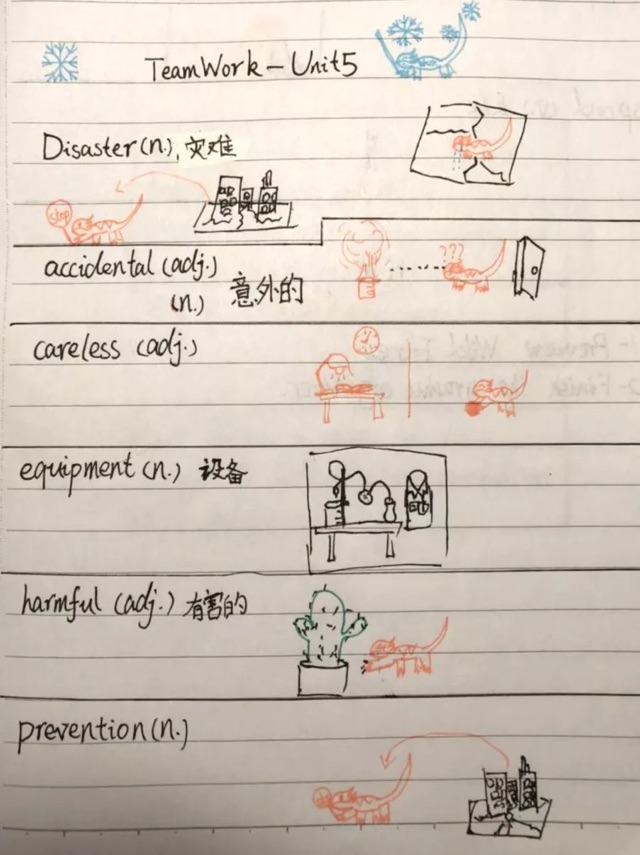 TeamWork - Unit5
Disaster (n.), 灾难
stop
accidental (adj.)
(n.) 意外的
???
careless (adj.)
equipment (n.) 设备
harmful (adj.) 有害的
prevention (n.)